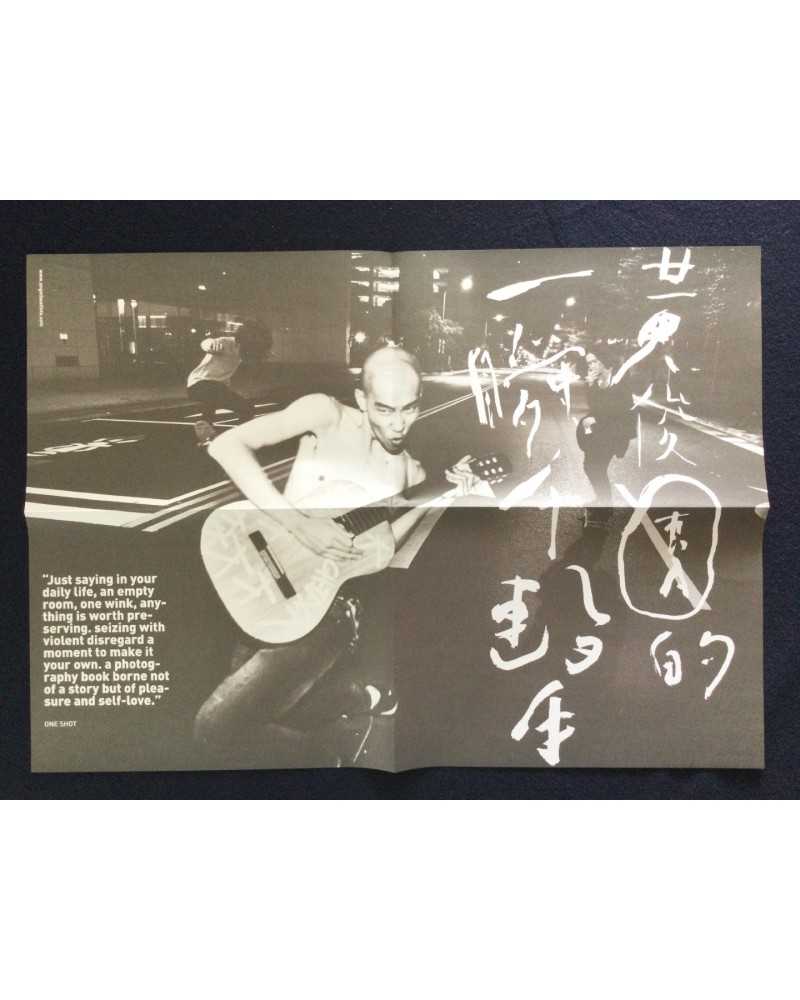 黃俊團的
一瞬千擊
"Just saying in your
daily life, an empty
room, one wink, any-
thing is worth pre-
serving. seizing with
violent disregard a
moment to make it
your own. a photog-
raphy book borne not
of a story but of plea-
sure and self-love."
ONE SHOT